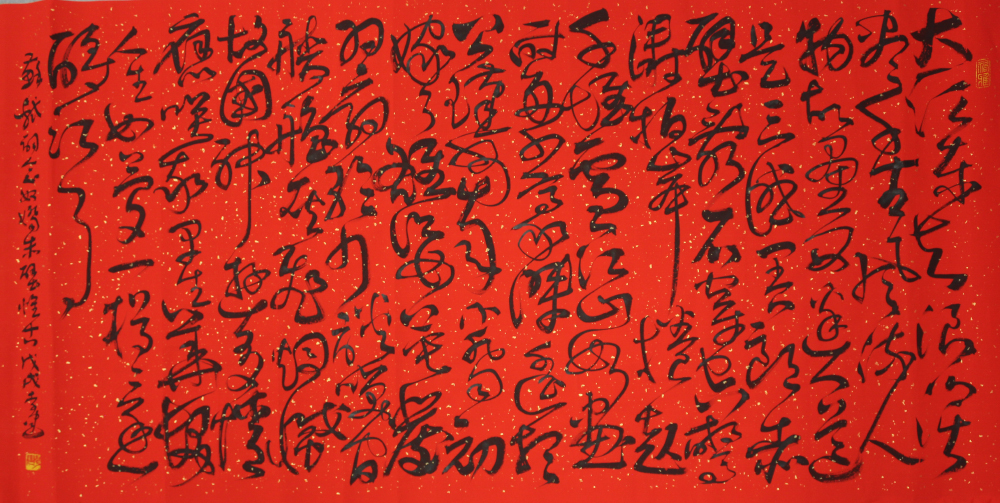 大江东去浪淘
尽千古风流人
物故垒西边人道
是三国周郎赤
壁乱石穿空惊
涛拍岸捲起
千堆雪江山如画
一时多少豪傑遥想
公瑾当年小乔初
嫁了雄姿英发
羽扇纶巾谈笑间
樯橹灰飞烟灭
故國神游多情
应笑我早生华髮
人生如梦一樽还
酹江月
苏轼词念奴娇赤壁怀古戊戌